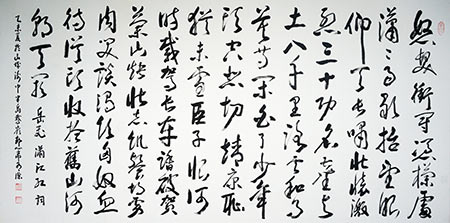 怒髮衝冠憑欄處
瀟瀟雨歇抬望眼
仰天長嘯壯懷激
烈三十功名塵與
土八千里路雲和月
莫等閒白了少年
頭空悲切靖康恥
猶未雪臣子恨何
時滅駕長車踏破賀
蘭山缺壯志飢餐胡虜
肉笑談渴飲匈奴血
待從頭收拾舊山河
朝天闕 岳飛 滿江紅詞
乙未夏於山城